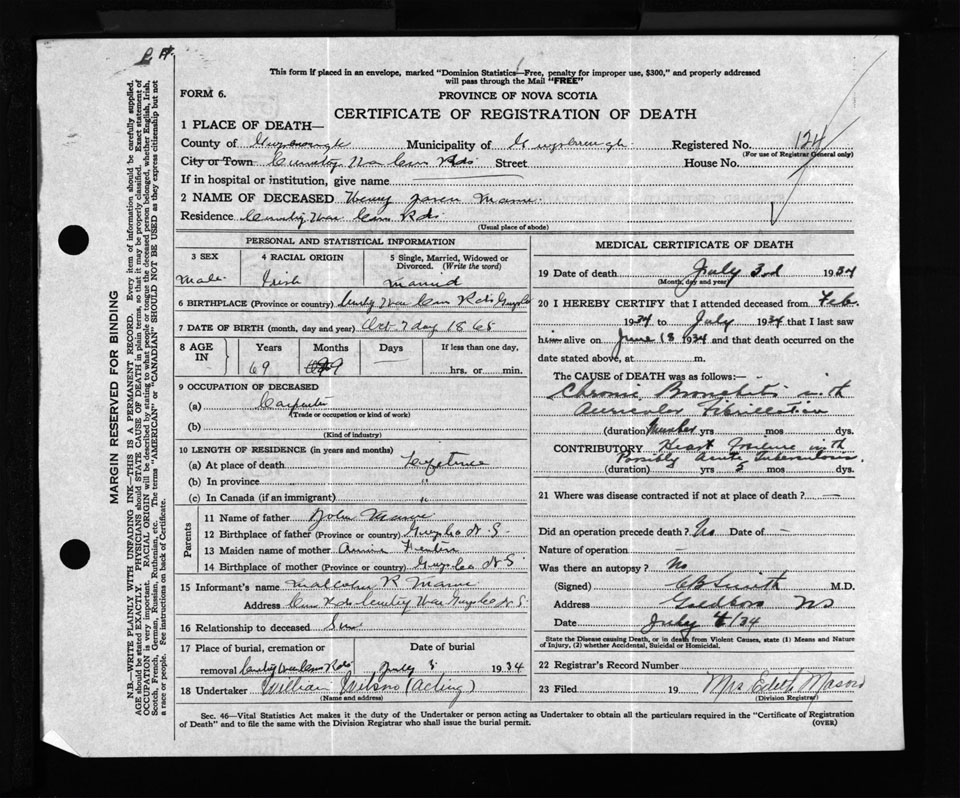 This form if placed in an envelope, marked "Dominion Statistics—Free, penalty for improper use, $300," and properly addressed
will pass through the Mail "FREE"
FORM 6.
PROVINCE OF NOVA SCOTIA
CERTIFICATE OF REGISTRATION OF DEATH
1 PLACE OF DEATH—
County of Guysborough Municipality of Guysborough Registered No. 124
(For use of Registrar General only)
City or Town Country Harbour X Rds Street House No.
If in hospital or institution, give name
2 NAME OF DECEASED Henry Mason
Residence Country Har Cross Rds
(Usual place of abode)
PERSONAL AND STATISTICAL INFORMATION
3 SEX 4 RACIAL ORIGIN 5 Single, Married, Widowed or
Divorced. (Write the word)
Male Irish married
6 BIRTHPLACE (Province or country) Country Har Cross Rds Guys Co
7 DATE OF BIRTH (month, day and year) Oct 7 day 1865
8 AGE IN Years Months Days If less than one day,
69 9 hrs. or min.
9 OCCUPATION OF DECEASED
(a) Carpenter
(Trade or occupation or kind of work)
(b)
(Kind of industry)
10 LENGTH OF RESIDENCE (in years and months)
(a) At place of death Lifetime
(b) In province "
(c) In Canada (if an immigrant) "
Parents
11 Name of father John Mason
12 Birthplace of father (Province or country) Guys Co N.S.
13 Maiden name of mother Fenton
14 Birthplace of mother (Province or country) Guys Co N S
15 Informant's name Malcolm R Mason
Address Cross Rds Country Har Guys Co N S
16 Relationship to deceased Son
17 Place of burial, cremation or Date of burial
removal Country Har Cross Rds July 5 1934
18 Undertaker William Wilson (acting)
(Name and address)
MEDICAL CERTIFICATE OF DEATH
19 Date of death July 3rd 1934
(Month, day and year)
20 I HEREBY CERTIFY that I attended deceased from Feb.
1934 to July 1934 that I last saw
him alive on June 18 1934 and that death occurred on the
date stated above, at m.
The CAUSE of DEATH was as follows:—
Chronic Bronchitis with
Auricular Fibrillation
(duration) Number yrs mos dys.
CONTRIBUTORY Heart Failure with
Possibly Acute Tuberculosis
(duration) yrs 5 mos dys.
21 Where was disease contracted if not at place of death? —
Did an operation precede death? No Date of —
Nature of operation —
Was there an autopsy? No
(Signed) C B Smith M.D.
Address Goldboro NS
Date July 4/34
State the Disease causing Death, or in death from Violent Causes, state (1) Means and Nature
of Injury, (2) whether Accidental, Suicidal or Homicidal.
22 Registrar's Record Number
23 Filed 19 Mrs Edith Mason
(Division Registrar)
Sec. 46—Vital Statistics Act makes it the duty of the Undertaker or person acting as Undertaker to obtain all the particulars required in the "Certificate of Registration
of Death" and to file the same with the Division Registrar who shall issue the burial permit. (OVER)
MARGIN RESERVED FOR BINDING
N.B. WRITE PLAINLY WITH UNFADING INK—THIS IS A PERMANENT RECORD. Every item of information should be carefully supplied.
AGE should be stated EXACTLY. PHYSICIANS should STATE CAUSE OF DEATH in plain terms, so that it may be properly classified. Exact statement of
OCCUPATION is very important. RACIAL ORIGIN will be described by stating to what people or tongue the deceased person belonged, whether English, Irish,
Scotch, French, German, Russian, Ruthenian, etc. The terms "AMERICAN" or "CANADIAN" SHOULD NOT BE USED as they express citizenship but not
a race or people. See instructions on back of Certificate.